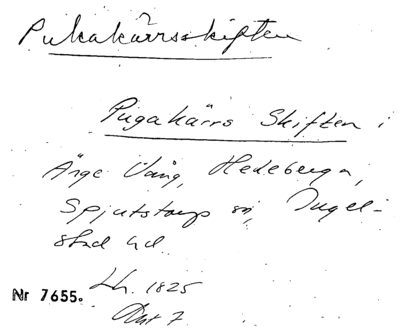 Pukakärrsskiften
Pugakärrs Skiften i
Änge Vång, Hedeberga,
Spjutstorp sn, Ingel-
stad hd.
Lh. 1825
Akt 7
Nr 7655.